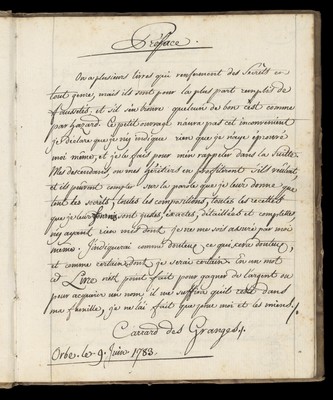 Préface.
On a plusieurs livres qui renferment des Secrèts en
tout genre, mais ils sont pour la plus part remplis de
faussetés, et s'il s'en trouve quelcun de bon c'est comme
par hazard. Ce petit ouvrage n'aura pas cet inconvenient
je déclare que je n'y indique rien que je n'aye éprouvé
moi même, et je le fais pour m'en rappeler dans la Suitte.
Mes descendans, ou mes héritiers en profiteront s'ils veulent
et ils peuvent compter sur la parole que je leur donne que
tout les secrèts, toutes les compositions, toutes les recettes
que je leur fournis sont justes, exactes, détaillées et complettes,
n'y ayant rien mis dont je ne me sois assuré par moi
même. J'indiquerai comme douteux ce qui sera douteux,
et comme certain dont je serai certain. En un mot
ce Livre n'est point fait pour gagner de l'argent ou
pour acquerir un nom, il me suffira qu'il reste dans
ma famille, je ne l'ai fait que pour moi et les miens.
Carrard des Granges.
Orbe. le 9. Juin 1783.